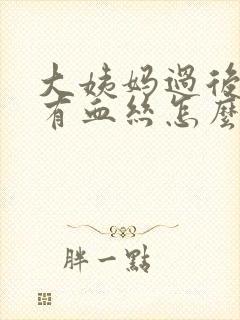 大姨妈過後
有血丝怎麼
胖一點